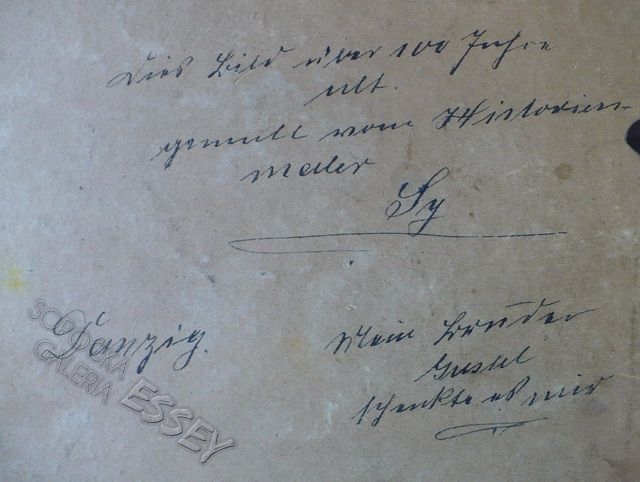 Dies Bild über 100 Jahre
alt.
gemalt vom Historien-
maler
Sy
Danzig.
Mein Bruder
Gustel
schenkte es mir
SOPOCKA
GALERIA ESSEY